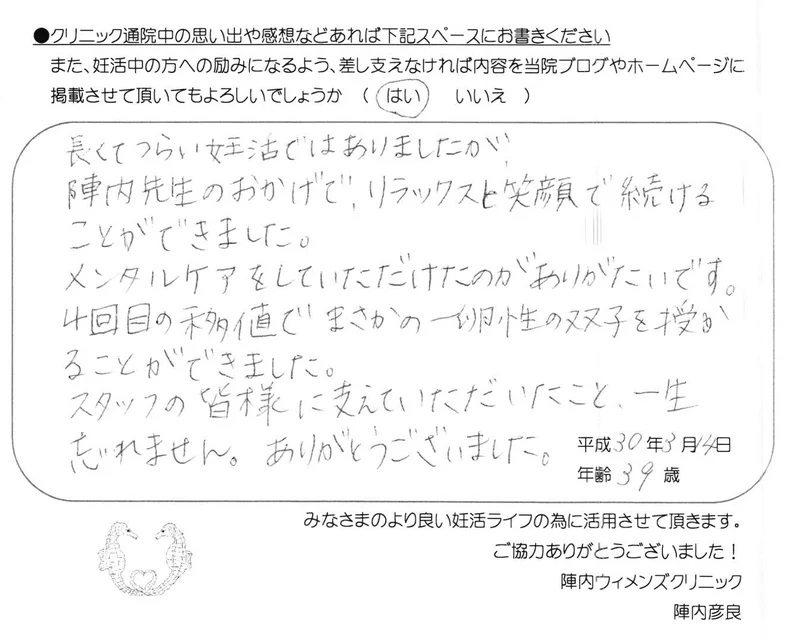 ●クリニック通院中の思い出や感想などあれば下記スペースにお書きください
また、妊活中の方への励みになるよう、差し支えなければ内容を当院ブログやホームページに
掲載させて頂いてもよろしいでしょうか （ はい いいえ ）
長くてつらい妊活ではありましたが、
陣内先生のおかげで、リラックスと笑顔で続ける
ことができました。
メンタルケアをしていただけたのがありがたいです。
4回目の移値でまさかの一卵性の双子を授か
ることができました。
スタッフの皆様に支えていただいたこと、一生
忘れません。ありがとうございました。
平成30年3月14日
年齢 39 歳
みなさまのより良い妊活ライフの為に活用させて頂きます。
ご協力ありがとうございました！
陣内ウィメンズクリニック
陣内彦良